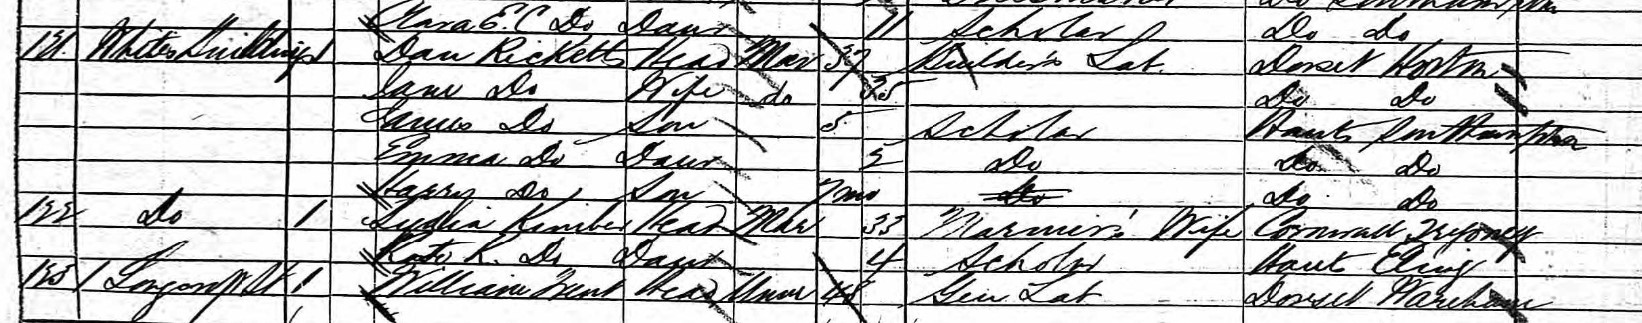 Clara E. C Do Daur 11 Scholar Do Do
121 Whites Buildings 1 Dan Ricketts Head Mar 37 Builder's Lab. Dorset Horton
Jane Do Wife do 35 Do Do
James Do Son 5 Scholar Hants Southampton
Emma Do Daur 2 Do Do Do
Harry Do Son 7mo Do Do Do
122 Do 1 Lydia Kimber Head Mar 33 Mariner's Wife Cornwall Tregoney
Kate K. Do Daur 4 Scholar Hants Eling
123 1 William Trent Head Unm 48 Gen Lab Dorset Wareham